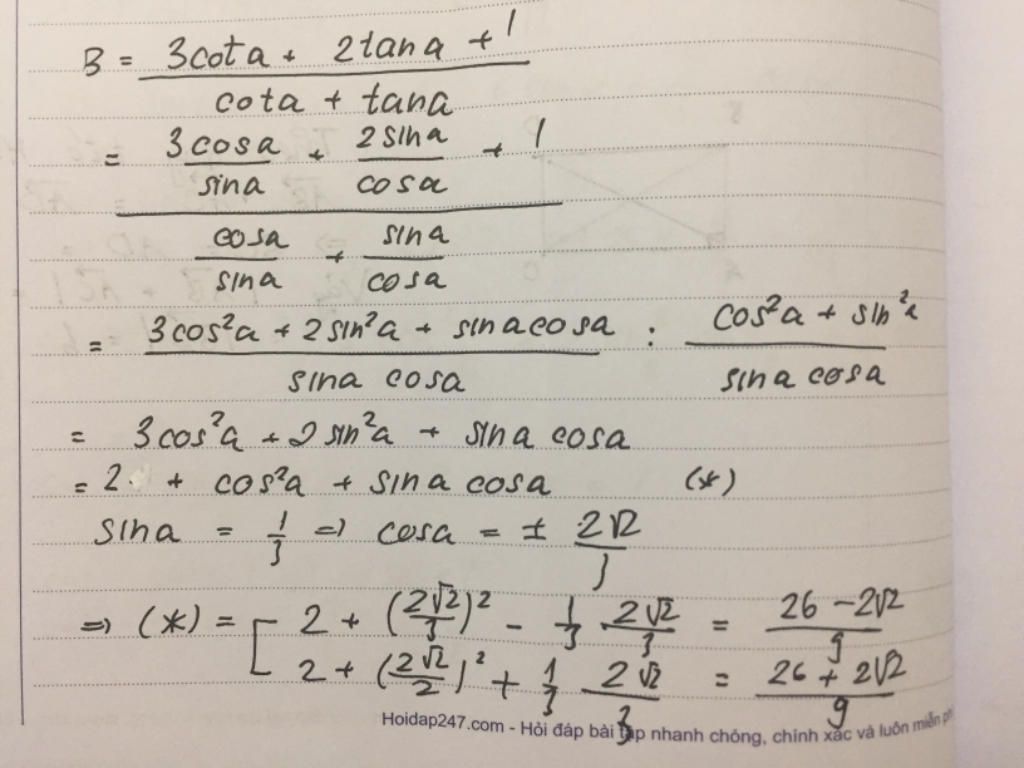 B = \frac{3cota + 2tana + 1}{cota + tana}
= \frac{\frac{3cosa}{sina} + \frac{2sina}{cosa} + 1}{\frac{cosa}{sina} + \frac{sina}{cosa}}
= \frac{3cos²a + 2sin²a + sinacosa}{sina cosa} : \frac{cos²a + sin²a}{sina cosa}
= 3cos²a + 2sin²a + sina cosa
= 2 + cos²a + sina cosa (*)
sina = \frac{1}{3} => cosa = ± \frac{2√2}{3}
=> (*) = [ 2 + (\frac{2√2}{3})² - \frac{1}{3} . \frac{2√2}{3} = \frac{26 - 2√2}{9}
2 + (\frac{2√2}{2})² + \frac{1}{3} \frac{2√2}{3} = \frac{26 + 2√2}{9}
Hoidap247.com - Hỏi đáp bài tập nhanh chóng, chính xác và luôn miễn ph